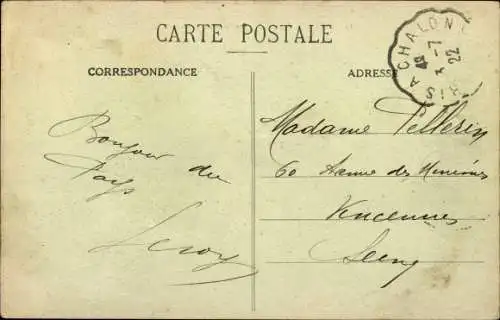 CARTE POSTALE
CORRESPONDANCE
ADRESSE
IS A CHALON
3-7
22
Bonjour du
Pays
Leroy
Madame Pellerin
60 des
Vincennes
Seine